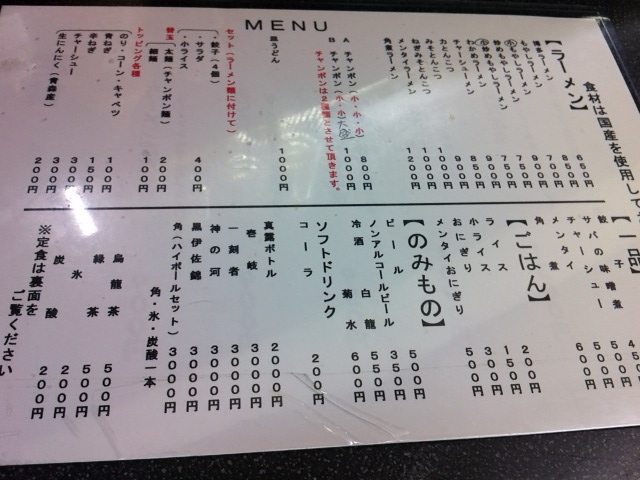 MENU
食材は国産を使用して
【ラーメン】
博多ラーメン 650円
もやしラーメン 850円
小もやしラーメン
炒めもやしラーメン
小炒めもやしラーメン
わかめラーメン
チャーシューラーメン
力とんこつ
みそとんこつ
ねぎみそとんこつ
メンタイラーメン 1000円
角煮ラーメン 1200円
A チャンポン(小・小・小) 800円
B チャンポン(小・小) 大盛 1000円
チャンポンは2種類とさせて頂きます。
皿うどん 1000円
セット(ラーメン麺に付けて)
・餃子(4個)
・サラダ
・小ライス 400円
替玉
太麺(チャンポン麺) 200円
細麺 100円
トッピング各種
のり・コーン・キャベツ
青ねぎ 100円
辛ねぎ 150円
チャーシュー 300円
生にんにく(青森産) 200円
【一品】
餃子 450円
サバの味噌煮 500円
チャーシュー
メンタイ
角煮 600円
【ごはん】
ライス 200円
小ライス 150円
おにぎり 300円
メンタイおにぎり 500円
【のみもの】
ビール 500円
ノンアルコールビール 350円
冷酒 白龍 550円
菊水 600円
ソフトドリンク
コーラ 200円
真露ボトル 2000円
壱岐 3000円
一刻者 3000円
神の河 3000円
黒伊佐錦 3000円
角(ハイボールセット) 3000円
角・氷・炭酸一本
烏龍茶 500円
緑茶 500円
氷 200円
炭酸 200円
※定食は裏面を
ご覧ください